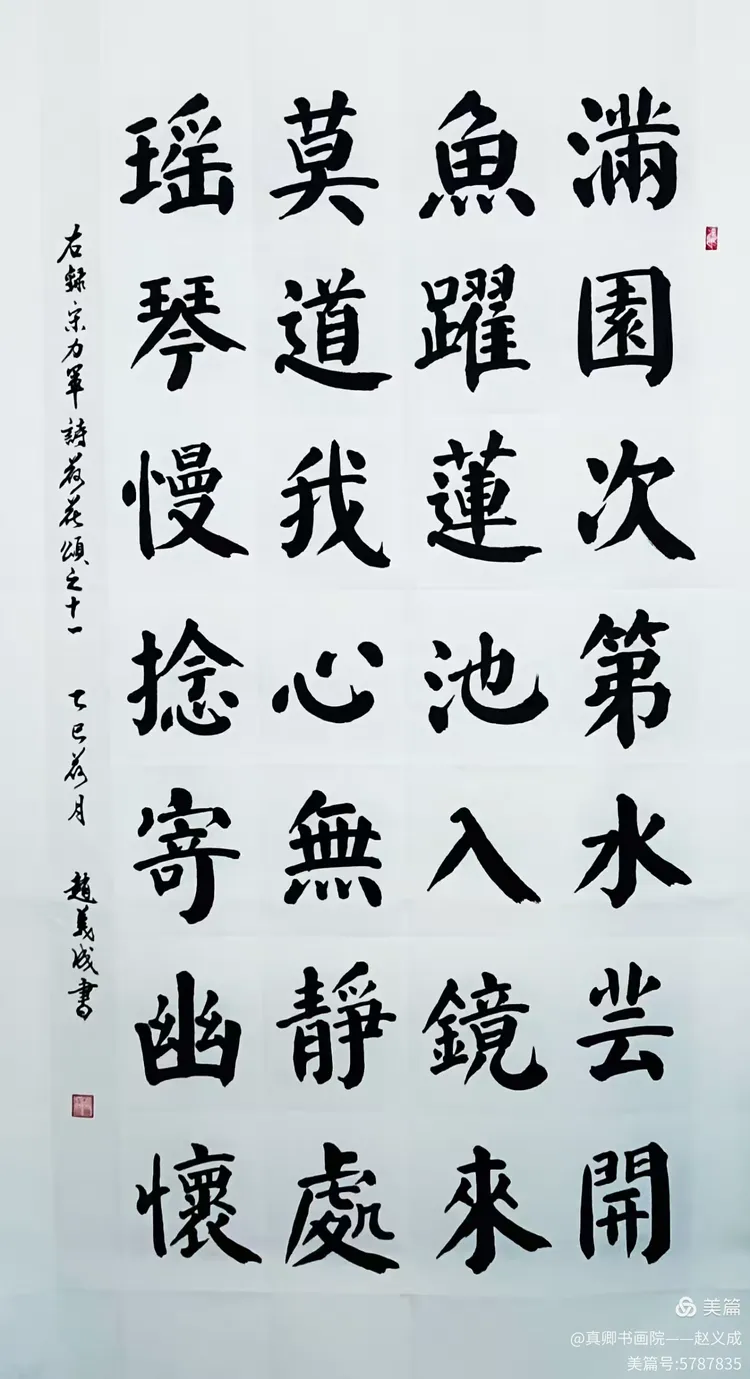 滿園次第水芸開
魚躍蓮池入鏡來
莫道我心無靜處
瑶琴慢捻寄幽懷
右錄宋力軍詩荷花頌之十一 乙巳荷月 趙義成書
美篇
@真卿书画院——赵义成
美篇号:5787835